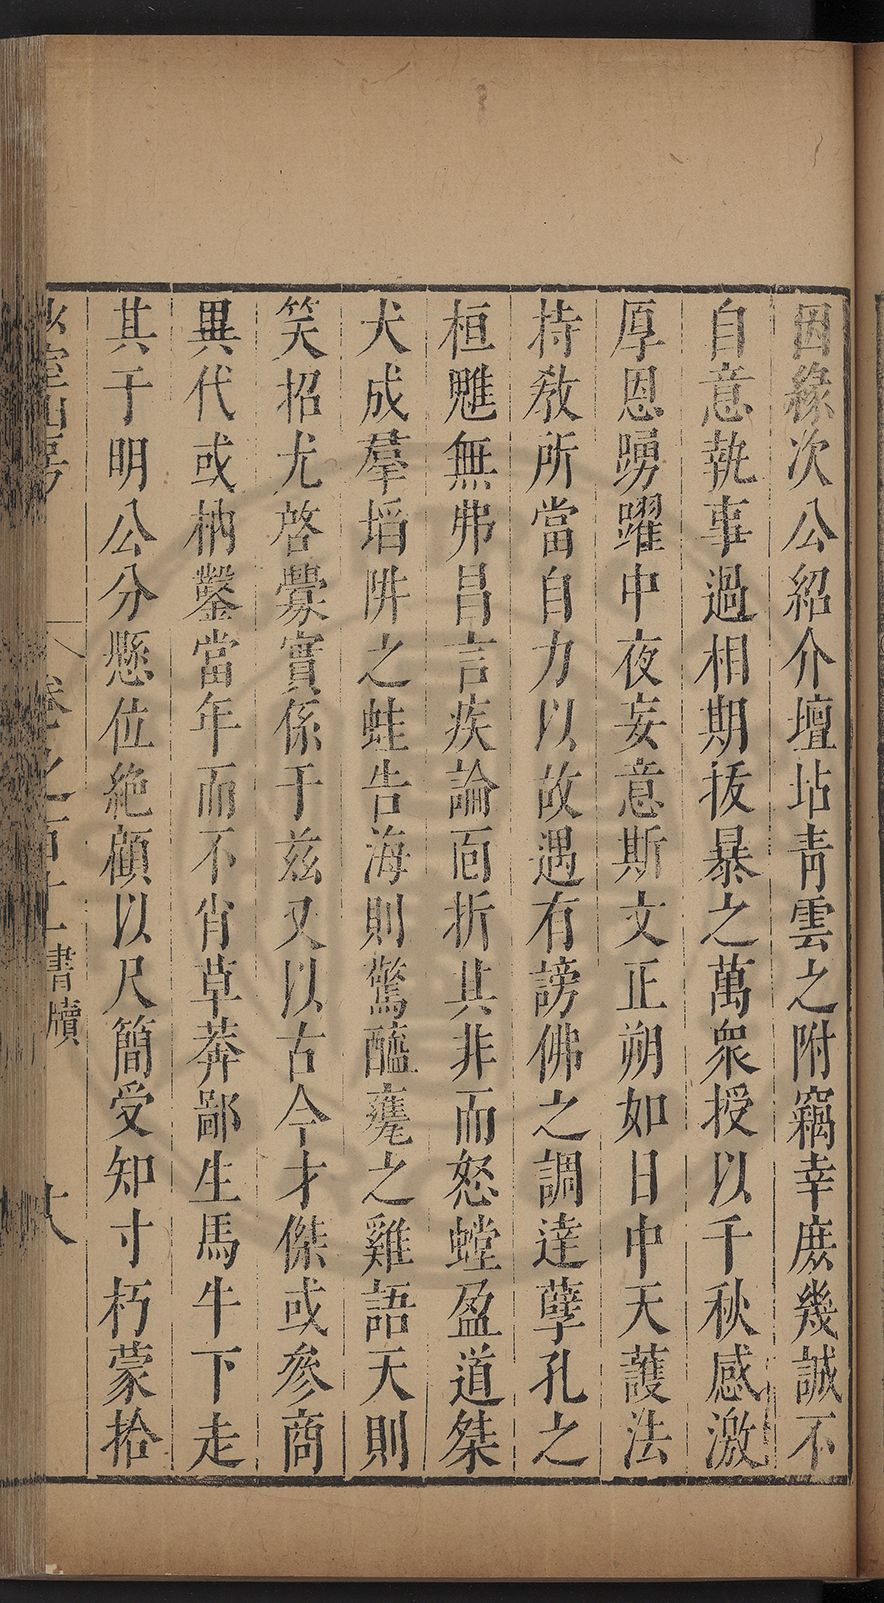 因緣次公紹介壇坫青雲之附竊幸庶幾誠不
自意執事過相期拔暴之萬衆授以千秋感激
厚恩踴躍中夜妄意斯文正朔如日中天護法
持敎所當自力以故遇有謗佛之調達孽孔之
桓魋無弗昌言疾論靣折其非而怒螳盈道桀
犬成羣埳阱之蛙告海則驚醯甕之雞語天則
笑招尤啓釁實係于兹又以古今才傑或參商
異代或枘鑿當年而不肖草莽鄙生馬牛下走
其于明公分懸位絶顧以尺簡受知寸朽蒙拾
室山房
卷之百十
書牘
十八